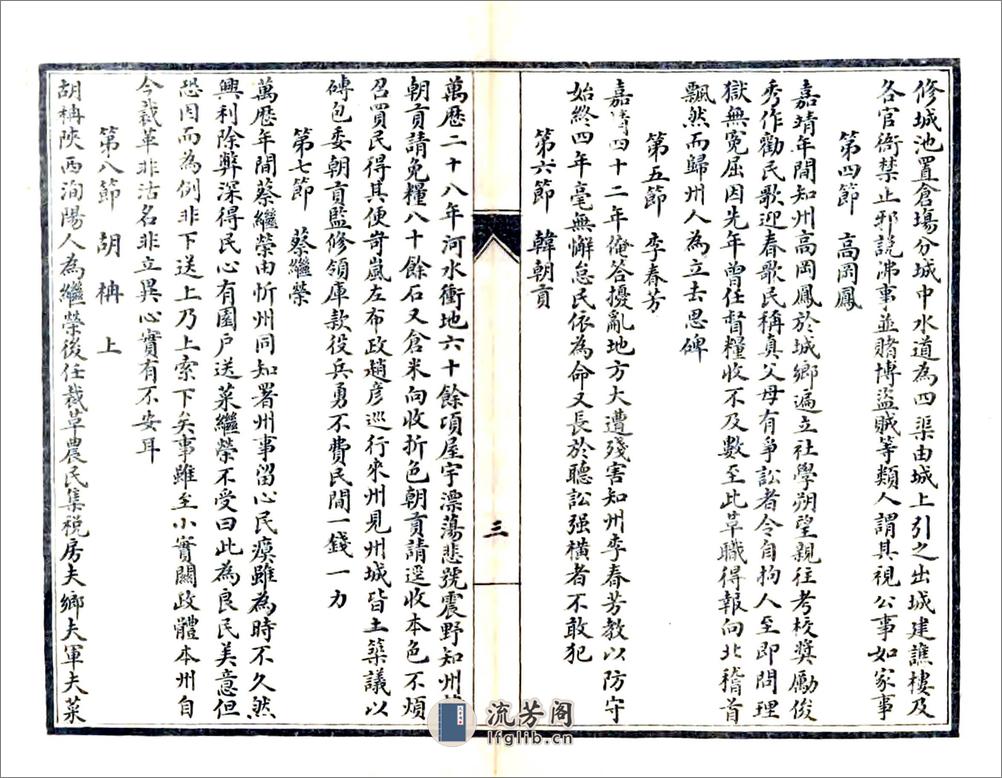 修城池置倉塲分城中水道為四渠由城上引之出城建譙樓及
各官衙禁止邪說沸事並賭博盜賊等類人謂其視公事如家事
第四節 高岡鳳
嘉靖年間知州高岡鳳於城鄉遍立社學朔望親往考校奬勵俊
秀作勸民歌迎春歌民稱真父母有爭訟者令自拘人至即問理
獄無冤屈因先年曾任督糧收不及數至此草職得報向北稽首
飄然而歸州人為立去思碑
第五節 李春芳
嘉靖四十二年俺答擾亂地方大遭殘害知州李春芳教以防守
始終四年毫無懈怠民依為命又長於聽訟强橫者不敢犯
第六節 韓朝貢
三
萬歷二十八年河水衝地六十餘項屋宇漂蕩悲號震野知州
朝貢請免糧八十餘石又倉米向收折色朝貢請逕收本色不煩
召買民得其便岢嵐左布政趙彥巡行來州見州城皆土築議以
磚包委朝貢監修領庫款役兵勇不費民間一錢一力
第七節 蔡繼榮
萬歷年間蔡繼榮由忻州同知署州事留心民瘼雖為時不久然
興利除弊深得民心有園戶送菜繼榮不受曰此為良民美意但
恐因而為例非下送上乃上索下矣事雖至小實關政體本州自
今裁革非沽名非立異心實有不安耳
第八節 胡柟 上
胡柟陝西洵陽人為繼榮後任裁草農民集稅房夫鄉夫軍夫菜
流芳阁
lfglib.cn